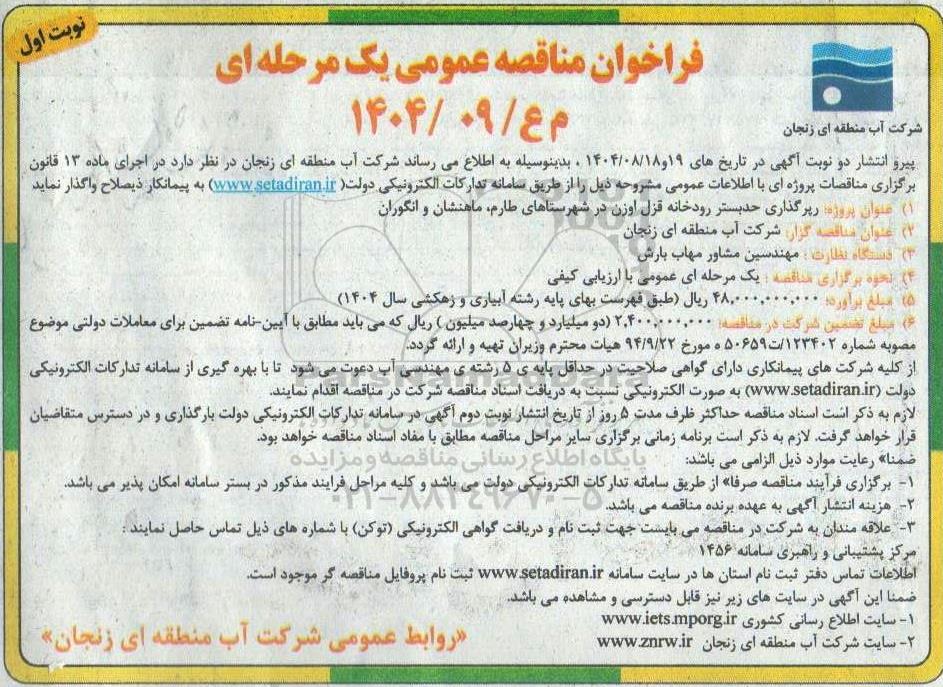 نوبت اول
فراخوان مناقصه عمومی یک مرحله ای
م ع/ ۰۹ /۱۴۰۴
شرکت آب منطقه ای زنجان
پیرو انتشار دو نوبت آگهی در تاریخ های ۱۹و۱۴۰۴/۰۸/۱۸ ، بدینوسیله به اطلاع می رساند شرکت آب منطقه ای زنجان در نظر دارد در اجرای ماده ۱۳ قانون
برگزاری مناقصات پروژه ای با اطلاعات عمومی مشروحه ذیل را از طریق سامانه تدارکات الکترونیکی دولت( www.setadiran.ir) به پیمانکار ذیصلاح واگذار نماید
۱) عنوان پروژه: رپرگذاری حدبستر رودخانه قزل اوزن در شهرستاهای طارم، ماهنشان و انگوران
۲) عنوان مناقصه گزار: شرکت آب منطقه ای زنجان
۳) دستگاه نظارت : مهندسین مشاور مهاب بارش
۴) نحوه برگزاری مناقصه : یک مرحله ای عمومی با ارزیابی کیفی
۵) مبلغ برآورد: ۴۸,۰۰۰,۰۰۰,۰۰۰ ریال (طبق فهرست بهای پایه رشته آبیاری و زهکشی سال ۱۴۰۴)
۶) مبلغ تضمین شرکت در مناقصه: ۲,۴۰۰,۰۰۰,۰۰۰ (دو میلیارد و چهارصد میلیون ) ریال که می باید مطابق با آیین-نامه تضمین برای معاملات دولتی موضوع
مصوبه شماره ۱۲۳۴۰۲/ت۵۰۶۵۹ ه مورخ ۹۴/۹/۲۲ هیات محترم وزیران تهیه و ارائه گردد.
از کلیه شرکت های پیمانکاری دارای گواهی صلاحیت در حداقل پایه ی ۵ رشته ی مهندسی آب دعوت می شود تا با بهره گیری از سامانه تدارکات الکترونیکی
دولت (www.setadiran.ir) به صورت الکترونیکی نسبت به دریافت اسناد مناقصه شرکت در مناقصه اقدام نمایند.
لازم به ذکر است اسناد مناقصه حداکثر ظرف مدت ۵ روز از تاریخ انتشار نوبت دوم آگهی در سامانه تدارکات الکترونیکی دولت بارگذاری و در دسترس متقاضیان
قرار خواهد گرفت. لازم به ذکر است برنامه زمانی برگزاری سایر مراحل مناقصه مطابق با مفاد اسناد مناقصه خواهد بود.
ضمنا» رعایت موارد ذیل الزامی می باشد:
پایگاه اطلاع رسانی مناقصه و مزایده
۱- برگزاری فرآیند مناقصه صرفا» از طریق سامانه تدارکات الکترونیکی دولت می باشد و کلیه مراحل فرایند مذکور در بستر سامانه امکان پذیر می باشد.
۰۲۱-۸۸۳۴۹۶۷۰-۵
۲- هزینه انتشار آگهی به عهده برنده مناقصه می باشد.
۳- علاقه مندان به شرکت در مناقصه می بایست جهت ثبت نام و دریافت گواهی الکترونیکی (توکن) با شماره های ذیل تماس حاصل نمایند :
مرکز پشتیبانی و راهبری سامانه ۱۴۵۶
اطلاعات تماس دفتر ثبت نام استان ها در سایت سامانه www.setadiran.ir ثبت نام پروفایل مناقصه گر موجود است.
ضمنا این آگهی در سایت های زیر نیز قابل دسترسی و مشاهده می باشد.
۱- سایت اطلاع رسانی کشوری www.iets.mporg.ir
۲- سایت شرکت آب منطقه ای زنجان www.znrw.ir
«روابط عمومی شرکت آب منطقه ای زنجان»